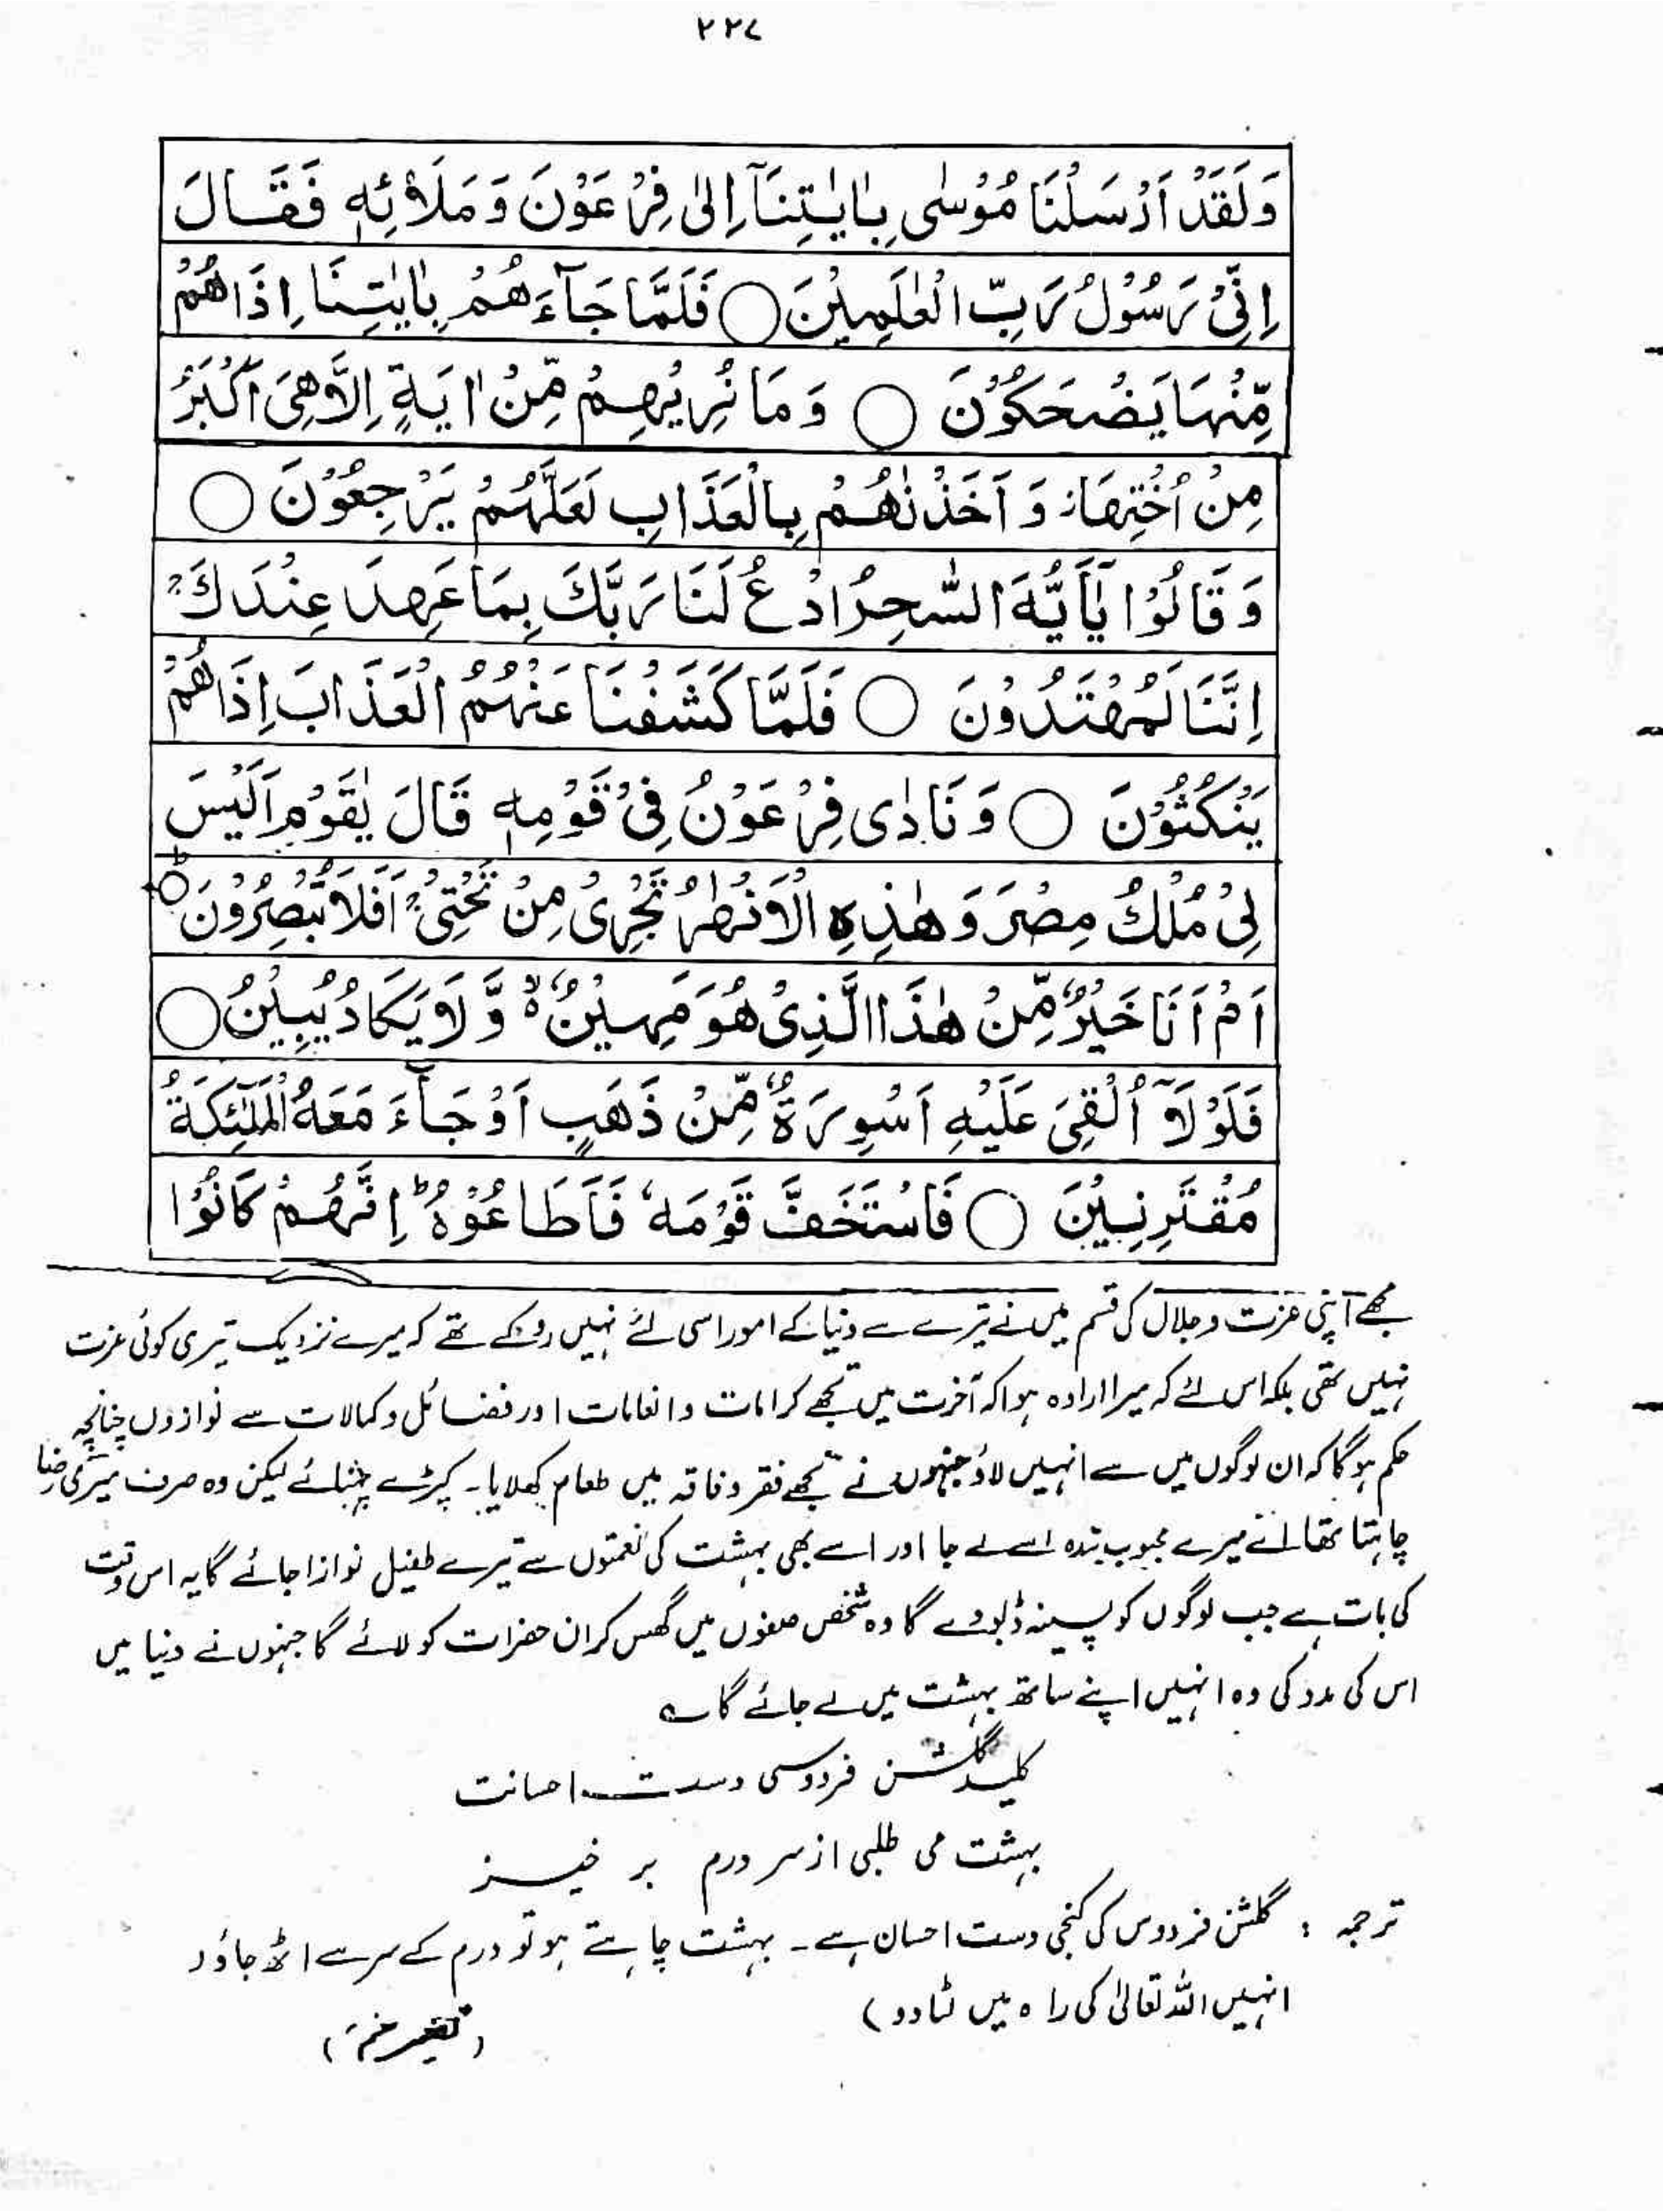 ۲۲۷
وَلَقَدْ اَرْسَلْنَا مُوْسٰى بِاٰيٰتِنَآ اِلٰى فِرْعَوْنَ وَمَلَا۠ئِهٖ فَقَالَ
اِنِّىْ رَسُوْلُ رَبِّ الْعٰلَمِيْنَ ○ فَلَمَّا جَآءَهُمْ بِاٰيٰتِنَا اِذَا هُمْ
مِّنْهَا يَضْحَكُوْنَ ○ وَمَا نُرِيْهِمْ مِّنْ اٰيَةٍ اِلَّا هِىَ اَكْبَرُ
مِنْ اُخْتِهَا ز وَ اَخَذْنٰهُمْ بِالْعَذَابِ لَعَلَّهُمْ يَرْجِعُوْنَ ○
وَ قَالُوْا يٰٓاَيُّهَ السّٰحِرُ ادْعُ لَنَا رَبَّكَ بِمَا عَهِدَ عِنْدَكَ ج
اِنَّنَا لَمُهْتَدُوْنَ ○ فَلَمَّا كَشَفْنَا عَنْهُمُ الْعَذَابَ اِذَا هُمْ
يَنْكُثُوْنَ ○ وَ نَادٰى فِرْعَوْنُ فِىْ قَوْمِهٖ قَالَ يٰقَوْمِ اَلَيْسَ
لِىْ مُلْكُ مِصْرَ وَ هٰذِهِ الْاَنْهٰرُ تَجْرِىْ مِنْ تَحْتِىْ ج اَفَلَا تُبْصِرُوْنَ ○ ط
اَمْ اَنَا خَيْرٌ مِّنْ هٰذَا الَّذِىْ هُوَ مَهِيْنٌ ۵ لا وَّلَا يَكَادُ يُبِيْنُ ○
فَلَوْلَآ اُلْقِىَ عَلَيْهِ اَسْوِرَةٌ مِّنْ ذَهَبٍ اَوْ جَآءَ مَعَهُ الْمَلٰٓئِكَةُ
مُقْتَرِنِيْنَ ○ فَاسْتَخَفَّ قَوْمَهٗ فَاَطَاعُوْهُ ط اِنَّهُمْ كَانُوْا
مجھے اپنی عزت و جلال کی قسم میں نے تیرے سے دنیا کے امور اسی لئے نہیں روکے تھے کہ میرے نزدیک تیری کوئی عزت
نہیں تھی بلکہ اس لئے کہ میرا ارادہ ہوا کہ آخرت میں تجھے کرامات و انعامات اور فضائل و کمالات سے نوازوں چنانچہ
حکم ہوگا کہ ان لوگوں میں سے انہیں لاؤ جنہوں نے تجھے فقر و فاقہ میں طعام کھلایا۔ کپڑے پہنائے لیکن وہ صرف میری رضا
چاہتا تھا اے میرے محبوب بندہ اسے لے جا اور اسے بھی بہشت کی نعمتوں سے تیرے طفیل نوازا جائے گا یہ اس وقت
کی بات ہے جب لوگوں کو پسینہ ڈبو دے گا وہ شخص صفوں میں گھس کر ان حضرات کو لائے گا جنہوں نے دنیا میں
اس کی مدد کی وہ انہیں اپنے ساتھ بہشت میں لے جائے گا ؎
کلید گلشن فردوسی دست احسانت
بہشت می طلبی از سر درم بر خیز
ترجمہ : گلشن فردوس کی کنجی دست احسان ہے۔ بہشت چاہتے ہو تو درم کے سر سے اٹھ جاؤ (
انہیں اللہ تعالیٰ کی راہ میں لٹا دو)